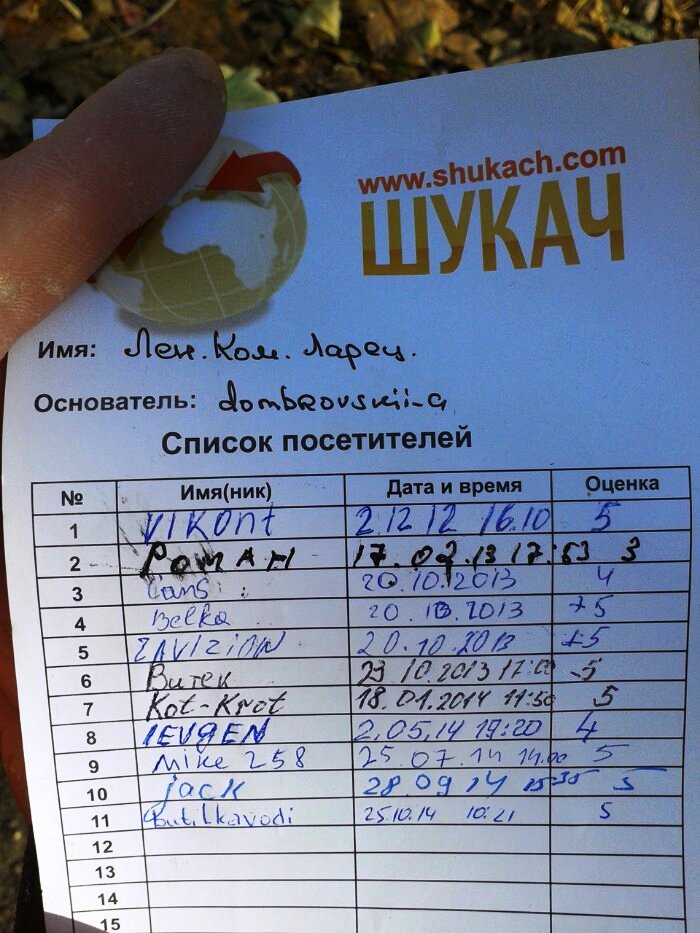 www.shukach.com
ШУКАЧ
Имя: Лен. Ком. Ларец.
Основатель: dombrovskii-a
Список посетителей
№ Имя(ник) Дата и время Оценка
1 VIKONT 2.12 12 16.10 5
2 РОМАН 17.02.13 17:53 3
3 20.10.2013 4
4 Belka 20.10.2013 +5
5 ZAVIZION 20.10.2013 +5
6 Витек 23.10.2013 17:00 -5
7 Kot-Krot 18.01.2014 11:50 5
8 IEVGEN 2,05,14 19:20 4
9 Mike 258 25.07.14 14.00 5
10 jack 28 09 14 15 35 5
11 Butilkavodi 25.10.14 10:21 5
12
13
14
15